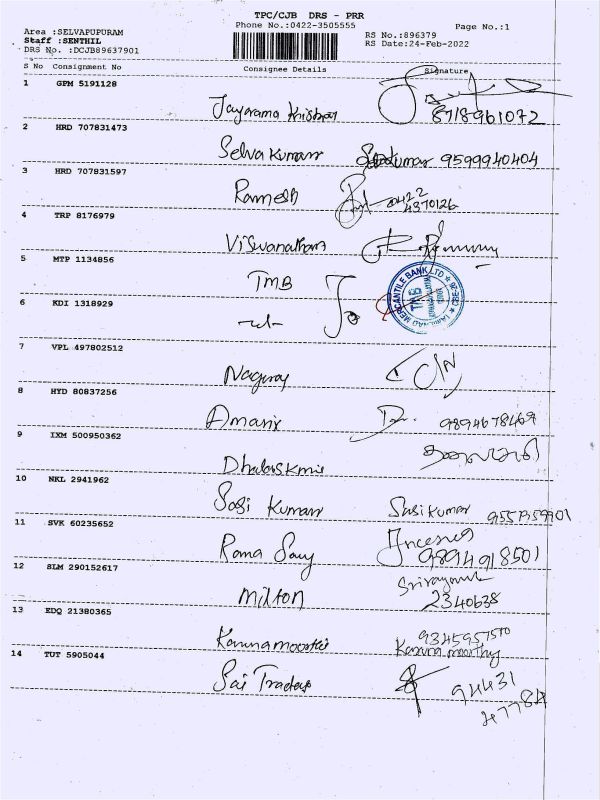 TPC/CJB DRS - PRR
Phone No.:0422-3505555
Page No.:1
Area :SELVAPUPURAM
Staff :SENTHIL
DRS No. :DCJB89637901
RS No.:896379
RS Date:24-Feb-2022
S No Consignment No Consignee Details Signature
1 GPM 5191128
Jayarama Krishnan 8718961072
2 HRD 707831473
Selva Kumar Selvakumar 9599940404
3 HRD 707831597
Ramesh 0422
4370126
4 TRP 8176979
Viswanatham
5 MTP 1134856
TMB
TAMILNAD MERCANTILE BANK LTD
TMB
6 KDI 1318929
7 VPL 497802512
Nagaraj
8 HYD 80837256
9894678469
9 IXM 500950362
10 NKL 2941962
Sasi Kumar Sasikumar
11 SVK 60235652
Rama Samy 9894918501
12 SLM 290152617
Milton 2340638
13 EDQ 21380365
Karunamoorthi Karunamoorthy
14 TUT 5905044
Sai Traders 94431
47784